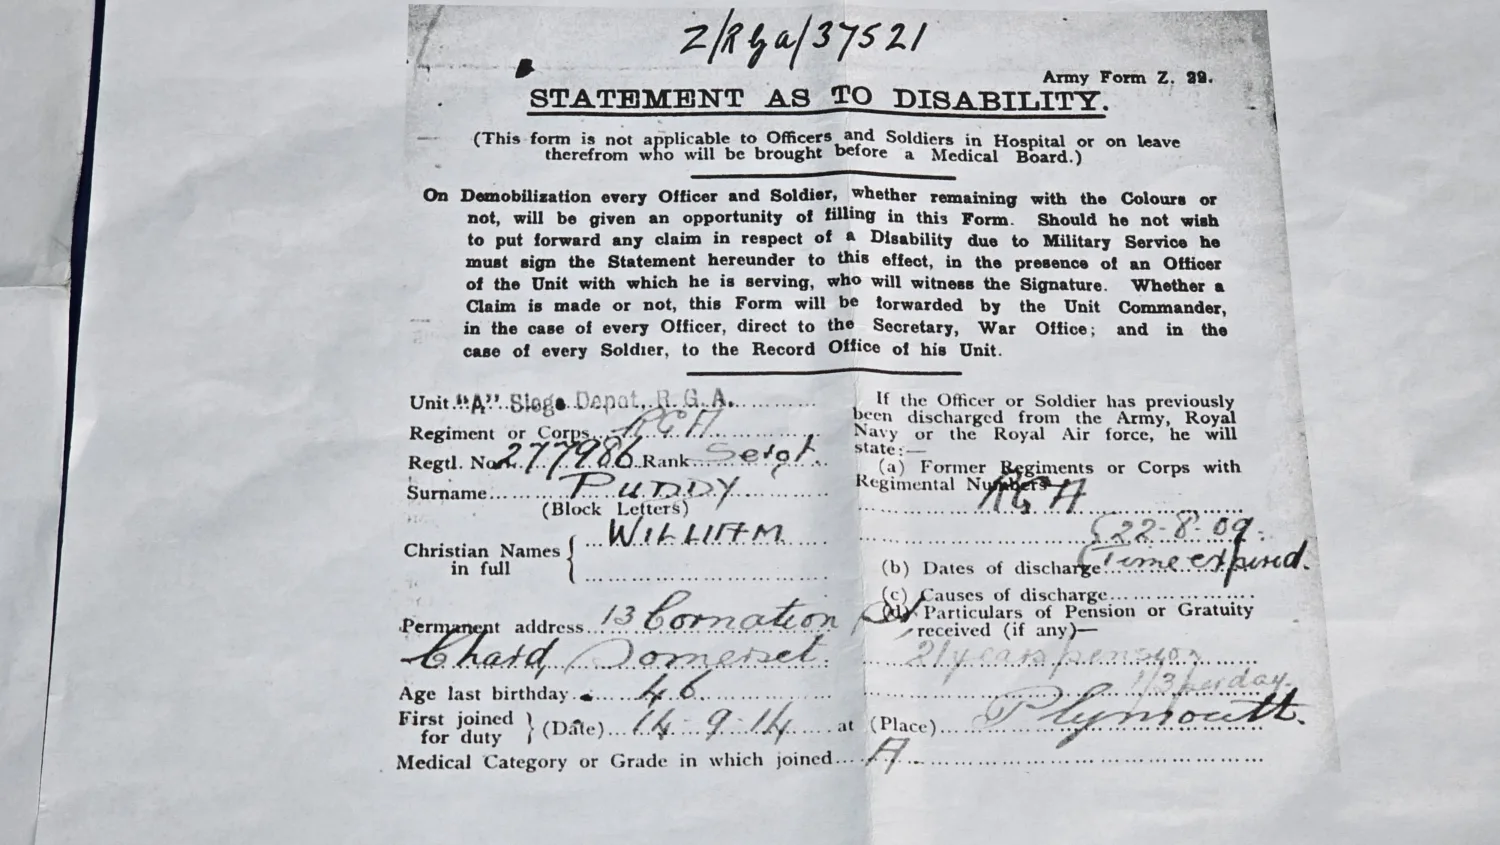 Z/Rga/37521
Army Form Z. 22.
STATEMENT AS TO DISABILITY.
(This form is not applicable to Officers and Soldiers in Hospital or on leave
therefrom who will be brought before a Medical Board.)
On Demobilization every Officer and Soldier, whether remaining with the Colours or
not, will be given an opportunity of filling in this Form. Should he not wish
to put forward any claim in respect of a Disability due to Military Service he
must sign the Statement hereunder to this effect, in the presence of an Officer
of the Unit with which he is serving, who will witness the Signature. Whether a
Claim is made or not, this Form will be forwarded by the Unit Commander,
in the case of every Officer, direct to the Secretary, War Office; and in the
case of every Soldier, to the Record Office of his Unit.
Unit "A" Siege Depot, R.G.A.
Regiment or Corps RGA
Regtl. No. 277986 Rank Sergt
Surname PUDDY
(Block Letters)
Christian Names in full WILLIAM
Permanent address 13 Cornation St
Chard Somerset
Age last birthday 46
First joined for duty (Date) 14-9-14 at (Place) Plymouth.
Medical Category or Grade in which joined A
If the Officer or Soldier has previously
been discharged from the Army, Royal
Navy or the Royal Air force, he will
state:—
(a) Former Regiments or Corps with
Regimental Numbers
RGA
22-8-09.
(b) Dates of discharge Time expired.
(c) Causes of discharge
(d) Particulars of Pension or Gratuity
received (if any)—
21 years pension
1/3 per day.